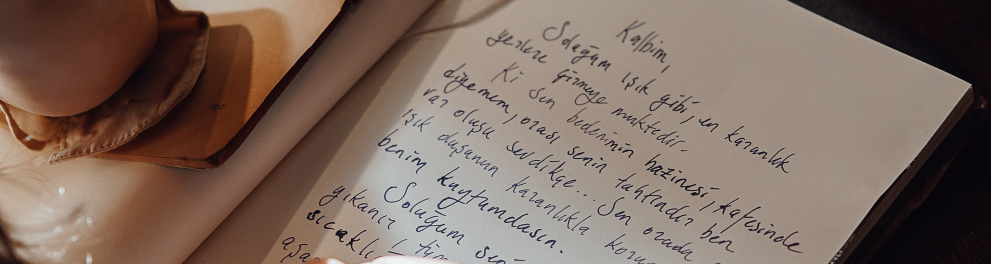 Kalbim,
Soluğum ışık gibi, en karanlık
yerlere girmeye muktedir.
Ki sen bedenimin hazinesi, kafesinde
diyemem, orası senin tahtındır ben
var oluşu sevdikçe... Sen orada
ışık duşanun karanlıkla
benim kaytumdasın.
Soluğum
yıkanır
sıcaklı